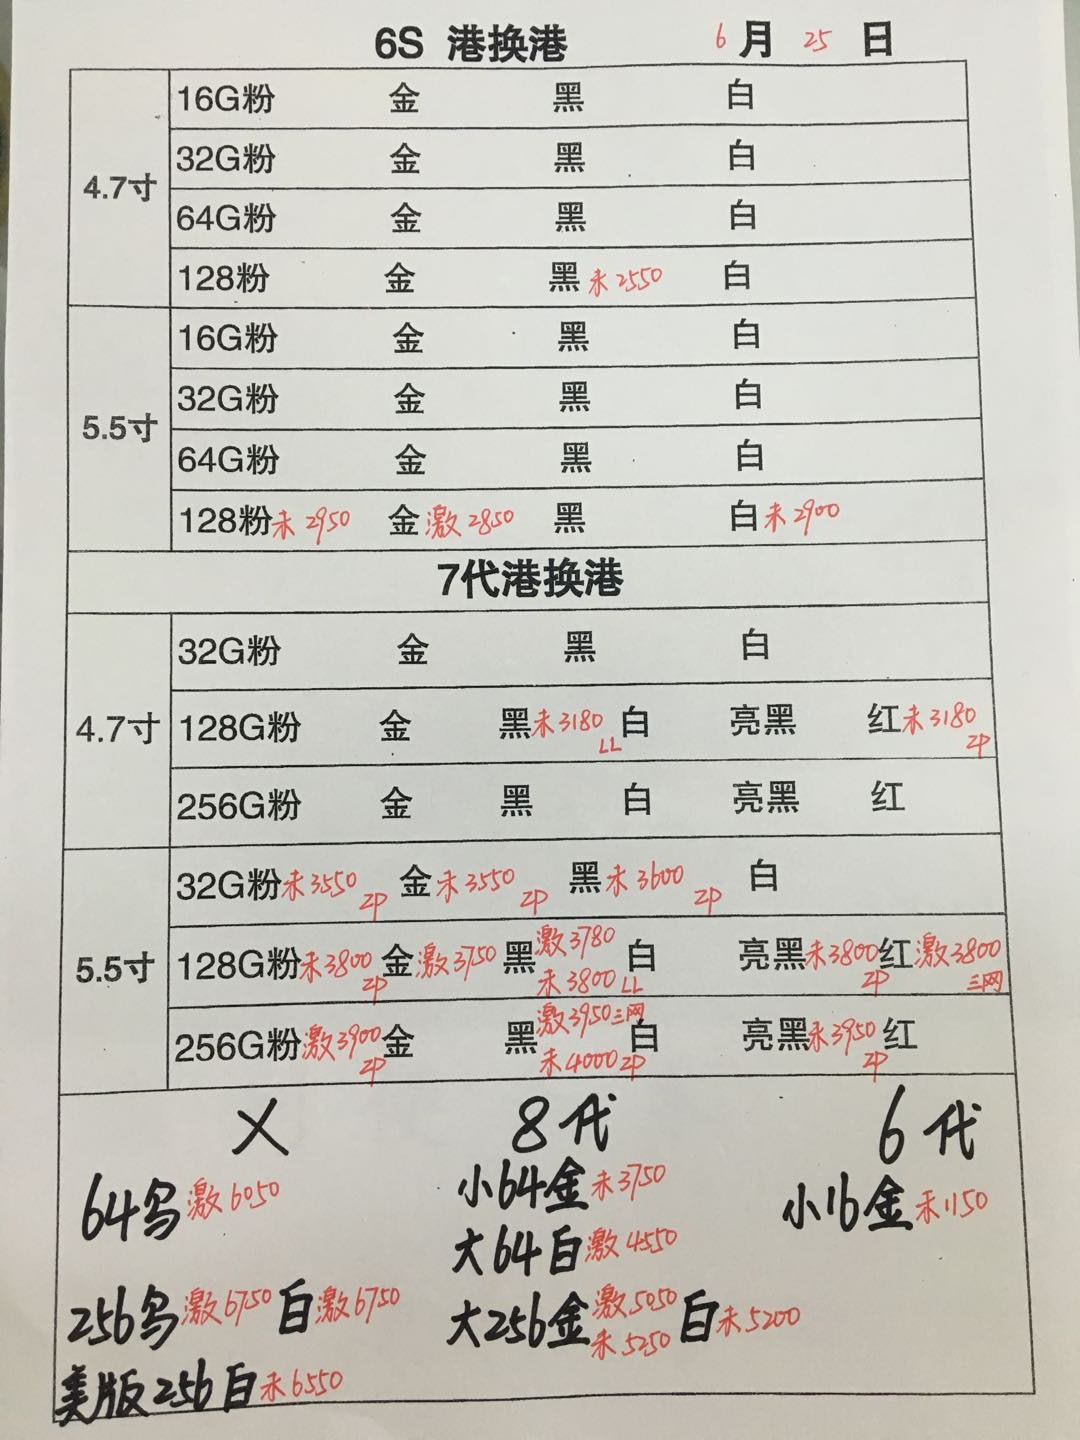 6S 港换港 6月25日
4.7寸
16G粉 金 黑 白
32G粉 金 黑 白
64G粉 金 黑 白
128粉 金 黑未2550 白
5.5寸
16G粉 金 黑 白
32G粉 金 黑 白
64G粉 金 黑 白
128粉未2950 金激2850 黑 白未2900
7代港换港
4.7寸
32G粉 金 黑 白
128G粉 金 黑未3180 LL 白 亮黑 红未3180 ZP
256G粉 金 黑 白 亮黑 红
5.5寸
32G粉未3550 ZP 金未3550 ZP 黑未3600 ZP 白
128G粉未3800 ZP 金激3750 黑激3780 未3800 LL 白 亮黑未3800 ZP 红激3800 三网
256G粉激3900 ZP 金 黑激3950三网 未4000 ZP 白 亮黑未3950 ZP 红
X 8代 6代
64乌激6050 小64金未3750 小16金未1150
大64白激4550
256乌激6750 白激6750 大256金激5050 未5250 白未5200
美版256白未6550